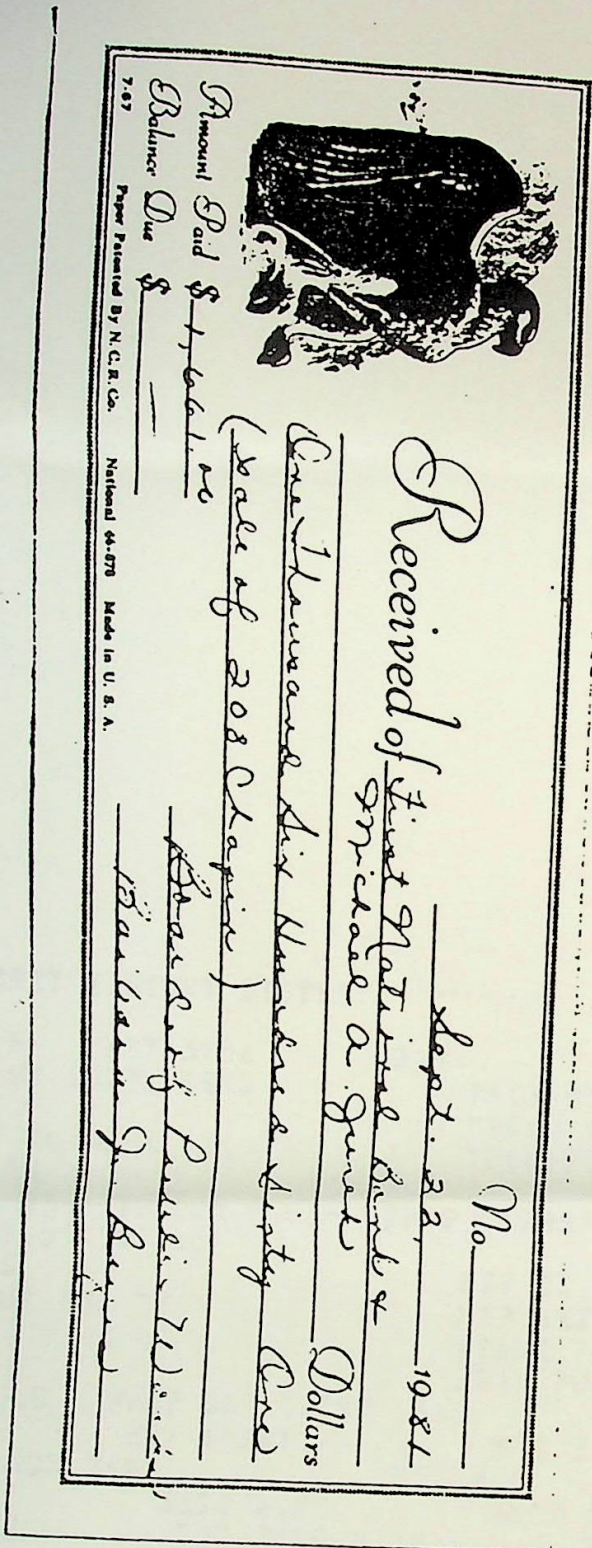 No.
Sept. 22, 1981
Received of First National Bank &
Michael A. Jurek
One Thousand Six Hundred Sixty One Dollars
(Sale of 208 Chapin)
Amount Paid $ 1,661.00
Balance Due $ —
Board of Public Works
Barbara
7-67 Paper Patented By N.C.R. Co. National 66-878 Made in U. S. A.